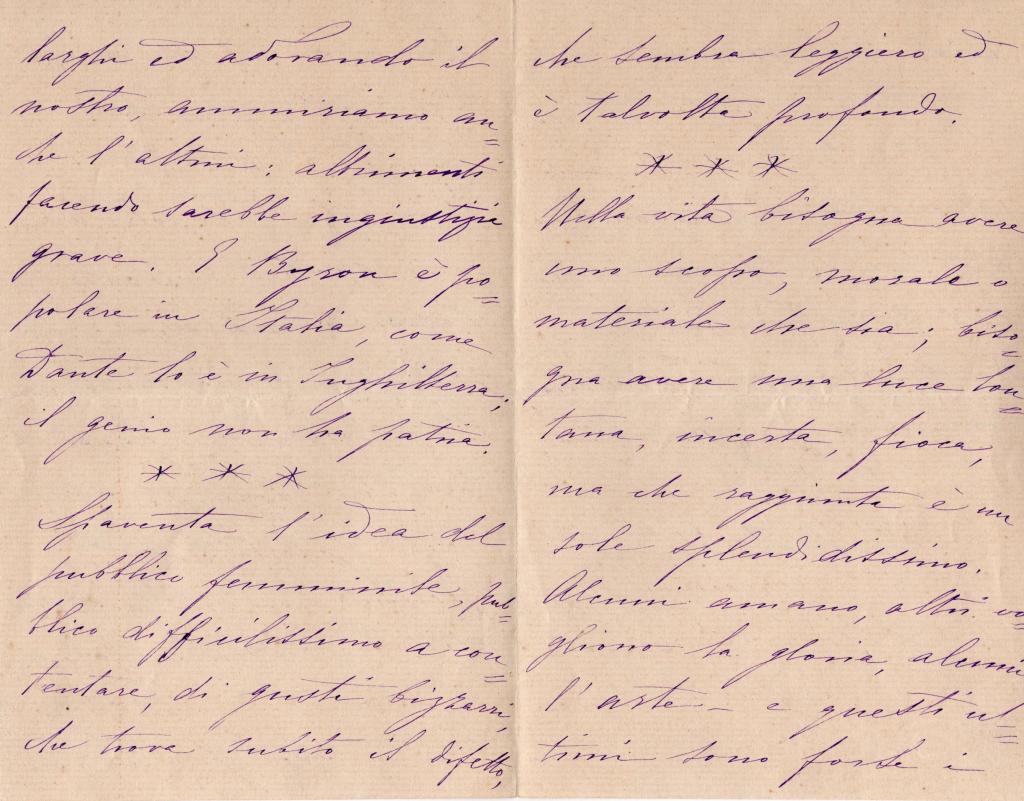 larghi ed adorando il
nostro, ammiriamo an=
che l'altrui: altrimenti
facendo sarebbe ingiustizia
grave. E Byron è po=
polare in Italia, come
Dante lo è in Inghilterra;
il genio non ha patria.
* * *
Spaventa l'idea del
pubblico femminile, pub=
blico difficilissimo a con=
tentare, di gusti bizzarri,
che trova subito il difetto,
che sembra leggiero ed
è talvolta profondo.
* * *
Nella vita bisogna avere
uno scopo, morale o
materiale che sia; biso=
gna avere una luce lon=
tana, incerta, fioca,
ma che raggiunta è un
sole splendidissimo.
Alcuni amano, altri vo=
gliono la gloria, alcuni
l'arte – e questi ul=
timi sono forse i